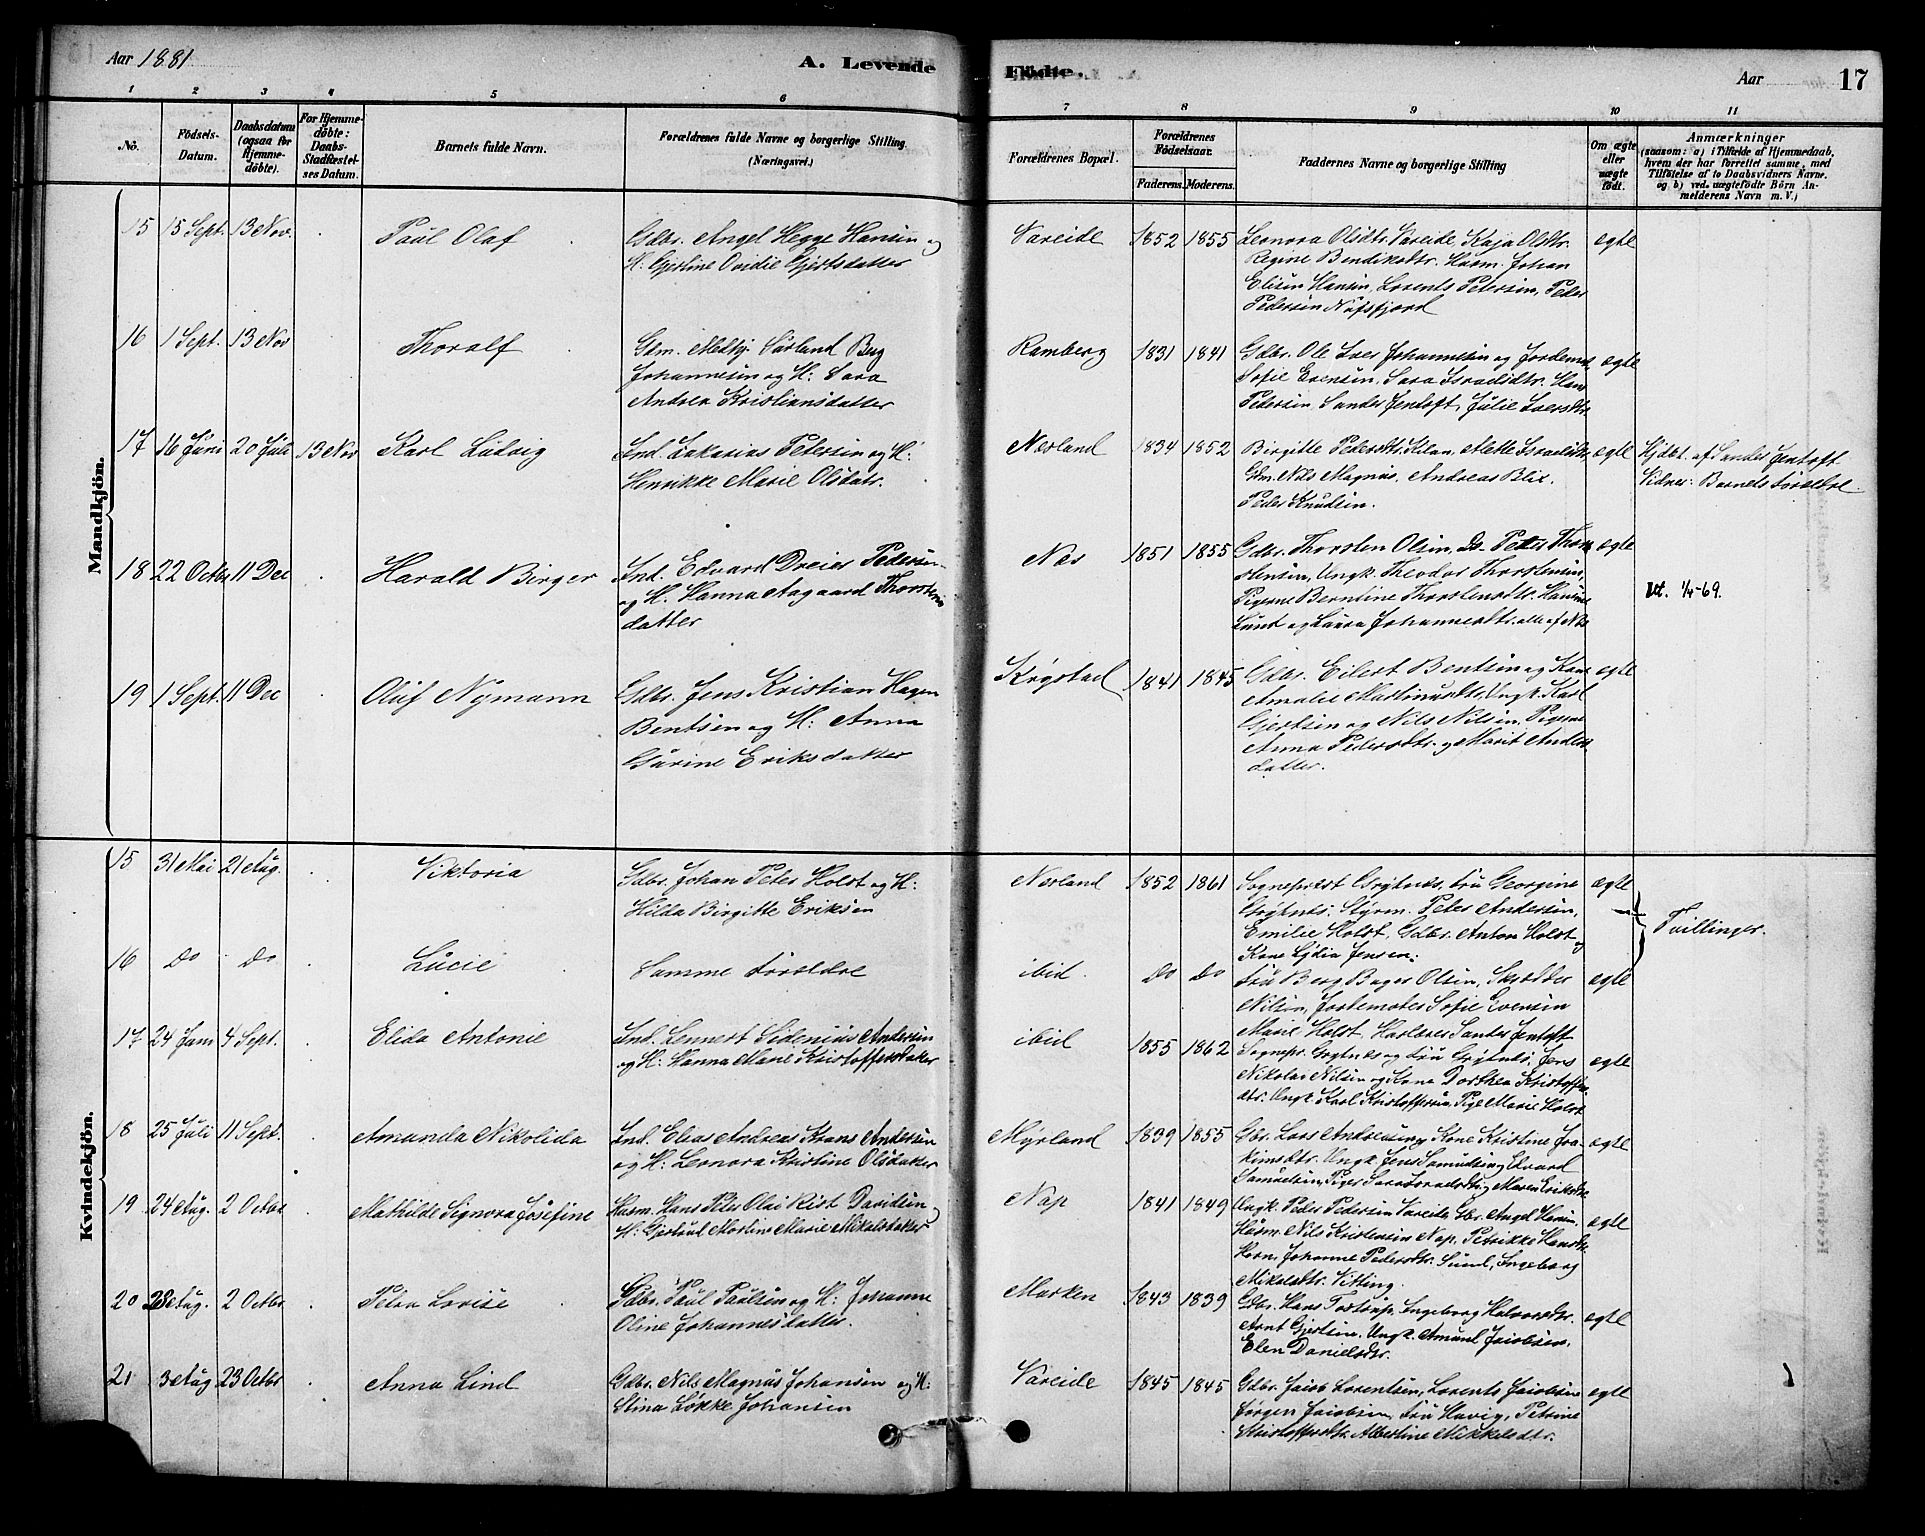 Aar 1881
A. Levende
Födte.
Aar
17
1 2 3 4 5 6 7 8 9 10 11
No.
Födsels-
Datum.
Daabsdatum
(ogsaa for
Hjemme-
döbte).
For Hjemme-
döbte:
Daabs-
Stadfæstel-
ses Datum.
Barnets fulde Navn.
Forældrenes fulde Navne og borgerlige Stilling
(Næringsvei.)
Forældrenes Bopæl.
Forældrenes
Födselsaar.
Faderens. Moderens.
Faddernes Navne og borgerlige Stilling
Om ægte
eller
uægte
födt.
Anmærkninger
(saasom: a) i Tilfælde af Hjemmedaab,
hvem der har forrettet samme, med
Tilföielse af to Daabsvidners Navne.
og b) ved uægtefödte Börn An-
melderens Navn m. V.)
Mandkjön.
15 15 Sept. 13 Nov. Paul Olaf
Gdbr. Angel Hegge Hansen og
H. Gjertine Ovidie Gjertsdatter
Vareide 1852 1855
Leonora Olsdtr. Vareide, Kaja Olsdtr.
Regine Bendiksdtr. Husm. Johan
Elisen Hansen, Lorents Petersen, Peder
Pedersen Nufsfjord
ægte
16 1 Sept. 13 Nov Thoralf
Gdm. Medhj. Sørland Berg
Johannesen og H: Sara
Andrea Kristiansdatter
Ramberg 1831 1841
Gdbr. Ole Iver Johannesen og Jordemor
Sofie Evensen, Sara Israelsdtr. Hans
Petersen, Sander Jentoft, Julie Iversdtr
ægte
17 16 Juni 20 Juli 13 Nov Karl Ludvig
Ind. Zakarias Petersen og H:
Henrikke Marie Olsdatr.
Nerland 1834 1852
Birgitte Pedersdtr. Kilan, Mette Israelsdtr
Gdm. Nils Magnus, Andreas Blix.
Peder Knudsen.
ægte
Hjdbt. af Sander Jentoft
Vidner: Barnets Forældre.
18 22 Octbr 11 Dec Harald Birger
Ind. Edvard Dreier Pedersen
og H. Hanna Aagaard Thorstens
datter
Nes 1851 1855
Gdbr. Thorsten Olsen, Do Peter Thor
stensen, Ungk. Theodor Thorstensen,
Pigerne Berntine Thorstensdtr. Hansine
Lund og Laura Johannesdtr. alle af Nes
ægte
Utt. 1/4-69.
19 1 Sept. 11 Dec Oluf Nymann
Gdbr. Jens Kristian Hagen
Bentsen og H. Anna
Gurine Eriksdatter
Krystad 1841 1845
Gdbr. Eilert Bentsen og Kone
Amalie Martinusdtr. Ungk. Karl
Gjertsen og Nils Nilsen, Pigerne
Anna Pedersdtr. og Marit Anders
datter.
ægte
Kvindekjön.
15 31 Mai 21 Aug. Viktoria
Gdbr. Johan Peter Holst og H:
Hilda Birgitte Eriksen
Nerland 1852 1861
Sogneprest Grytnes, Fru Georgine
Grytnes, Styrm. Peter Andersen,
Emilie Holst, Gdbr. Anton Holst og
Kone Lydia Jensen.
ægte
Tvillinger.
16 Do Do Lucie
Samme Forældre
ibid. Do Do
Fru Berg Bager Olsen, Skrædder
Nilsen, Jordemoder Sofie Evensen
Marie Holst, Handler Sander Jentoft
ægte
17 24 Juni 4 Sept. Elida Antonie
Ind. Lennert Sidenius Andersen
og H. Hanna Marie Kristoffersdatter
ibid 1855 1862
Sognepr. Grytnes og Fru Grytnes, Jens
Nikolai Nilsen og Kone Dorthea Kristoffers
dtr. Ungk. Karl Kristoffersen, Pige Marie Holst
ægte
18 25 Juli 11 Sept. Amanda Nikolida
Ind. Elias Andreas Krans Andersen
og H: Leonora Kristine Olsdatter
Myrland 1839 1855
Gbr. Lars Andreassen og Kone Kristine Joa-
kimsdtr. Ungk. Jens Samuelsen og Edvard
Samuelsen, Piger Sara Israelsdtr. og Maren Eriksdtr
ægte
19 24 Aug. 2 Octbr Mathilde Signora Josefine
Husm. Hans Peter Olai Rist Davidsen og
H. Gjertrud Martine Marie Mikelsdatter
Nap 1841 1849
Ungk. Peder Pedersen Vareide, Gbr. Angel Hansen,
Husm. Nils Kristensen Nap, Petrikke Hansdtr.
Horn, Johanne Pedersdtr. Sund, Ingeborg
Mikelsdtr. Vitting.
ægte
20 28 Aug. 2 Octbr. Petra Lovise
Gdbr. Paul Paulsen og H. Johanne
Oline Johannesdatter.
Marken 1843 1839
Gdbr. Hans Tostrup, Ingeborg Halvorsdtr.
Arnt Gjertsen, Ungk. Amund Jacobsen,
Elen Danielsdtr.
ægte
21 3 Aug 23 Octbr Anna Lind
Gdbr. Nils Magnus Johansen og H:
Stina Løkke Johansen
Vareide 1845 1845
Gdbr. Jacob Lorentsen, Lorents Jacobsen
Jørgen Jacobsen, Fru Havig, Petrine
Kristoffersdtr. Albertine Mikkelsdtr.
ægte